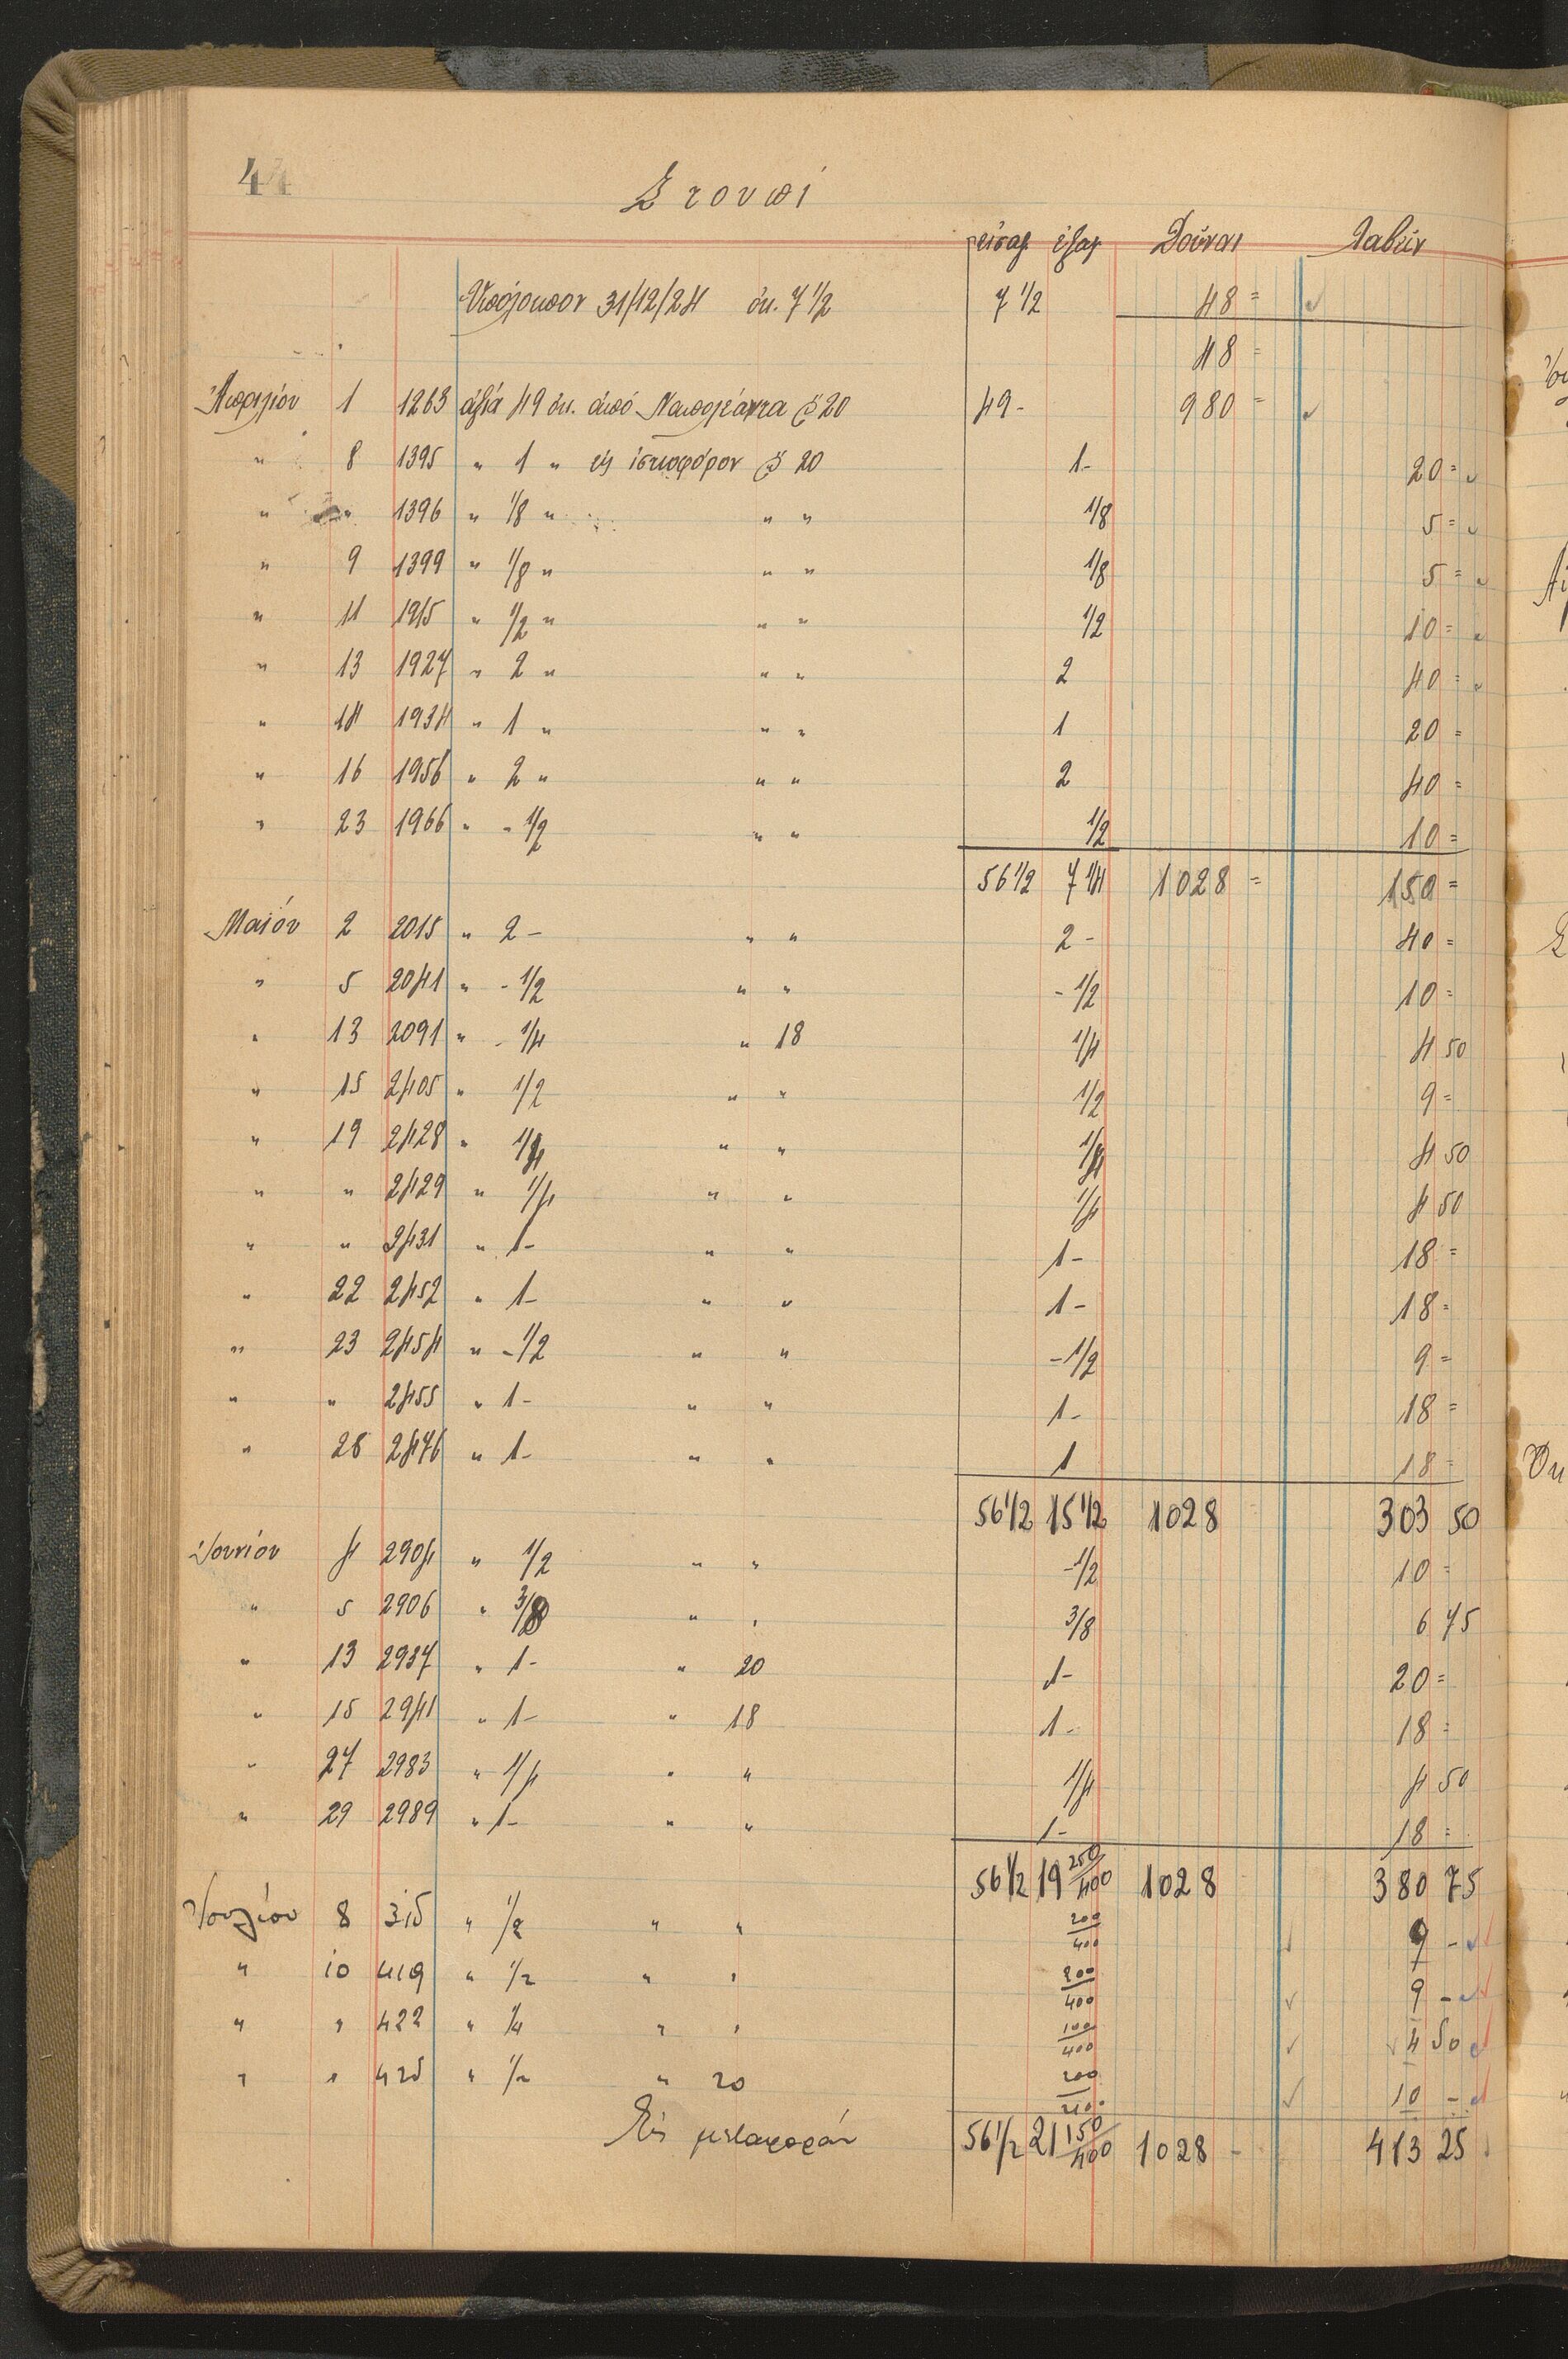 44
Στουπί
εἰσαγ. ἐξαγ. Δοῦναι Λαβεῖν
Ὑπόλοιπον 31/12/24 ὀκ. 7 1/2 7 1/2 48 =
48 =
Ἀπριλίου 1 1263 ἀξία 49 ὀκ. ἀπό Ναπολέοντα 20 49 - 980 =
" 8 1395 " 1 " εἰς ἱστιοφόρον 20 1 - 20 =
" " 1396 " 1/8 " " " 1/8 5 =
" 9 1399 " 1/8 " " " 1/8 5 =
" 11 1915 " 1/2 " " " 1/2 10 =
" 13 1927 " 2 " " " 2 40 =
" 14 1934 " 1 " " " 1 20 =
" 16 1956 " 2 " " " 2 40 =
" 23 1966 " - 1/2 " " 1/2 10 =
56 1/2 7 1/4 1028 = 150 =
Μαΐου 2 2015 " 2 - " " 2 - 40 =
" 5 2041 " - 1/2 " " - 1/2 10 =
" 13 2091 " - 1/4 " 18 1/4 4 50
" 15 2405 " 1/2 " " 1/2 9 =
" 19 2428 " 1/4 " " 1/4 4 50
" " 2429 " 1/4 " " 1/4 4 50
" " 2431 " 1 - " " 1 - 18 =
" 22 2452 " 1 - " " 1 - 18 =
" 23 2454 " - 1/2 " " - 1/2 9 =
" " 2455 " 1 - " " 1 - 18 =
" 28 2476 " 1 - " " 1 18 =
56 1/2 15 1/2 1028 303 50
Ἰουνίου 4 2904 " 1/2 " " - 1/2 10 =
" 5 2906 " 3/8 " " 3/8 6 75
" 13 2937 " 1 - " 20 1 - 20 =
" 15 2941 " 1 - " 18 1 - 18 =
" 27 2983 " 1/4 " " 1/4 4 50
" 29 2989 " 1 - " " 1 - 18 =
56 1/2 19 250/400 1028 380 75
Ἰουλίου 8 315 " 1/2 " " 200/400 9 -
" 10 419 " 1/2 " " 200/400 9 -
" " 422 " 1/4 " " 100/400 4 50
" " 425 " 1/2 " 20 200/400 10 -
Εἰς μεταφοράν 56 1/2 21 150/400 1028 - 413 25